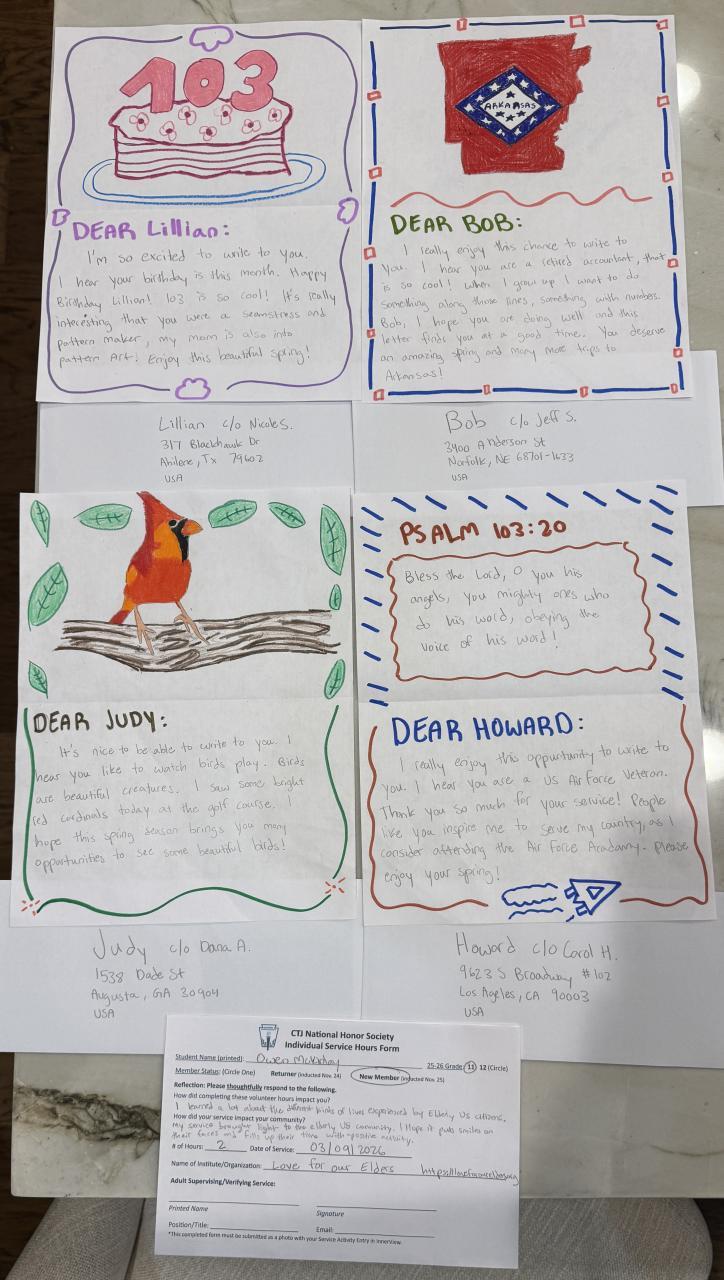 103
DEAR Lillian:
I'm so excited to write to you.
I hear your birthday is this month. Happy
Birthday Lillian! 103 is so cool! It's really
interesting that you were a seamstress and
pattern maker, my mom is also into
pattern Art! Enjoy this beautiful spring!
Lillian c/o Nicole S.
317 Blackhawk Dr
Abilene, Tx 79602
USA
ARKANSAS
DEAR BOB:
I really enjoy this chance to write to
you. I hear you are a retired accountant, that
is so cool! When I grow up I want to do
something along those lines, something with numbers.
Bob, I hope you are doing well and this
letter finds you at a good time. You deserve
an amazing spring and many more trips to
Arkansas!
Bob c/o Jeff S.
3400 Anderson St
Norfolk, NE 68701-1633
USA
DEAR JUDY:
It's nice to be able to write to you. I
hear you like to watch birds play. Birds
are beautiful creatures. I saw some bright
red cardinals today at the golf course. I
hope this spring season brings you many
opportunities to see some beautiful birds!
Judy c/o Dana A.
1538 Dade St
Augusta, GA 30904
USA
PSALM 103:20
Bless the Lord, O you his
angels, you mighty ones who
do his word, obeying the
voice of his word!
DEAR HOWARD:
I really enjoy this oppurtunity to write to
you. I hear you are a US Air Force Veteran.
Thank you so much for your service! People
like you inspire me to serve my country, as I
consider attending the Air Force Acadamy. Please
enjoy your spring!
Howard c/o Carol H.
9623 S Broadway #102
Los Angeles, CA 90003
USA
CTJ National Honor Society
Individual Service Hours Form
Student Name (printed): Owen
25-26 Grade: 11 12 (Circle)
Member Status: (Circle One) Returner (Inducted Nov. 24) New Member (Inducted Nov. 25)
Reflection: Please thoughtfully respond to the following.
How did completing these volunteer hours impact you?
I learned a lot about the different kinds of lives experienced by Elderly US citizens.
How did your service impact your community?
My service brought light to the elderly US community. I hope it puts smiles on
their faces and fills up their time with positive activity.
# of Hours: 2 Date of Service: 03/09/2026
Name of Institute/Organization: Love for our Elders
Adult Supervising/Verifying Service:
Printed Name Signature
Position/Title: Email:
*This completed form must be submitted as a photo with your Service Activity Entry in InnerView.